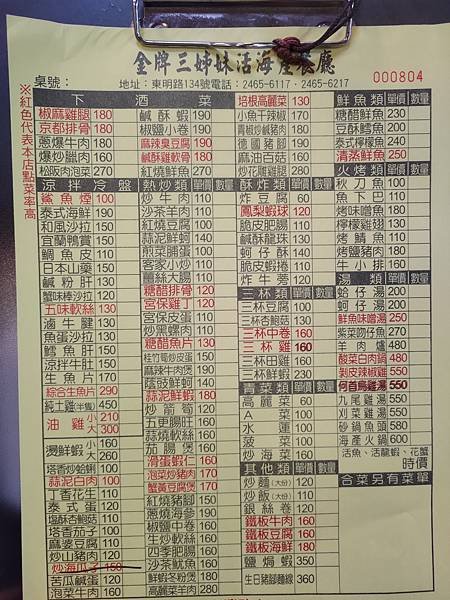 金牌三姊妹活海產餐廳
桌號：
地址：東明路134號電話：2465-6117．2465-6217
000804
※紅色代表本店點菜率高
下酒菜
椒麻雞腿 180
京都排骨 180
蔥爆牛肉 180
爆炒臘肉 160
松阪肉泡菜 270
鹹酥蝦 190
椒鹽小卷 190
麻辣臭豆腐 190
鹹酥雞軟骨 180
培根高麗菜 130
小魚干辣椒 170
青椒炒鹹豬肉 180
德國豬腳
麻油百菇 160
涼拌冷盤
鯊魚煙 100
泰式海鮮 190
和風沙拉 150
宜蘭鴨賞 150
鯛魚皮 110
日本山藥 150
鹹粉肝 130
蟹味棒沙拉 120
五味軟絲 130
滷牛腱 130
魚蛋沙拉 130
鱈魚肝 150
涼拌牛肚 150
生魚片 170
綜合生魚片 290
純土雞(半隻) 450
油雞 小 210
大 300
燙鮮蝦 小 160
大 260
塔香炒蛤蜊 100
蒜泥白肉 100
丁香花生 110
泰式蛋 120
塩酥杏鮑菇 110
塔香茄子 110
麻婆豆腐 110
炒山豬肉 150
炒海瓜子 150
苦瓜鹹蛋 120
泡菜牛肉 150
熱炒類 單價 數量
炒牛肉 110
沙茶羊肉 110
紅燒豆腐 100
蒜泥鮮蚵 140
煎菜脯蛋 100
客家小炒 110
薑絲大腸 110
糖醋排骨 120
宮保雞丁 120
宮保皮蛋 110
炒黑螺肉 110
糖醋魚片 130
桂竹筍炒皮蛋 150
麻辣牛肉煲 200
蔭豉鮮蚵 140
蒜泥鮮蝦 180
炒箭筍 200
五更腸旺 160
蒜燒軟絲 160
茄腸煲 160
滑蛋蝦仁 160
泡菜炒豬肉 170
蟹黃豆腐煲 170
紅燒豬腳 150
蔥燒海參 190
椒鹽中卷 160
生炒軟絲 160
四季肥腸 160
沙茶魷魚 160
鮮蝦冬粉煲 180
高麗菜羊肉 280
酥炸類 單價 數量
炸豆腐 60
鳳梨蝦球 120
脆皮肥腸 110
鹹酥龍珠 130
蚵仔酥 140
脆皮蝦捲 110
炸牛蒡 120
三杯類 單價 數量
三杯豆腐 100
三杯杏鮑菇 130
三杯中卷 160
三杯雞 160
三杯田雞 160
三杯鮮蝦 230
青菜類 單價 數量
高麗菜 60
A菜 100
水蓮 100
菠菜 100
炒海菜 160
其他類 單價 數量
炒麵(大份) 120
炒飯(大份) 110
銀絲卷 120
鐵板牛肉 160
鐵板豆腐 160
鐵板海鮮 180
鹽焗蝦 350
生日豬腳麵線 360
鮮魚類 單價 數量
糖醋鮮魚 230
豆酥鱈魚 200
泰式檸檬魚 240
清蒸鮮魚 250
火烤類 單價 數量
秋刀魚
魚下巴
烤味噌魚
檸檬雞翅
烤鯖魚
烤鹽豬肉
牛小排
湯類 單價 數量
蛤仔湯
蚵仔湯
鮮魚味噌湯 250
紫菜吻仔魚
羊肉爐 480
酸菜白肉鍋 480
剝皮辣椒雞 550
何首烏雞湯 550
九尾雞湯 550
刈菜雞湯 550
砂鍋魚頭 580
海產火鍋 600
活魚、活龍蝦、花蟹
時價
合菜另有菜單